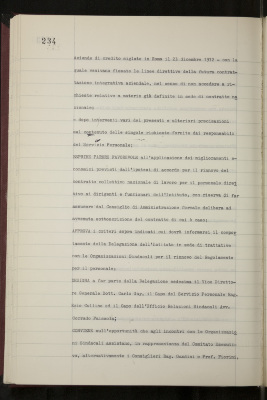 234
aziende di credito siglate in Roma il 21 dicembre 1972 - con la
quale vennero fissate le linee direttive della futura contrat-
tazione integrativa aziendale, nel senso di non accedere a ri-
chieste relative a materie già definite in sede di contratto na
zionale;
- dopo interventi vari dei presenti e ulteriori precisazioni
sul contenuto delle singole richieste fornite dal responsabile
del Servizio Personale;
ESPRIME PARERE FAVOREVOLE all'applicazione dei miglioramenti e-
conomici previsti dall'ipotesi di accordo per il rinnovo del
contratto collettivo nazionale di lavoro per il personale diret
tivo ai dirigenti e funzionari dell'Istituto, con riserva di far
assumere dal Consiglio di Amministrazione formale delibera ad
avvenuta sottoscrizione del contratto di cui è caso;
APPROVA i criteri sopra indicati cui dovrà informarsi il compor
tamento della Delegazione dell'Istituto in sede di trattative
con le Organizzazioni Sindacali per il rinnovo del Regolamento
per il personale;
DELEGA a far parte della Delegazione medesima il Vice Diretto-
re Generale Dott. Dario Rag. il Capo del Servizio Personale Rag.
e il Capo dell'Ufficio Relazioni Sindacali Avv.
CONVIENE sull'opportunità che agli incontri con le Organizzazio
ni Sindacali assistano, in rappresentanza del Comitato Esecuti-
vo, alternativamente i Consiglieri Rag. e Prof.